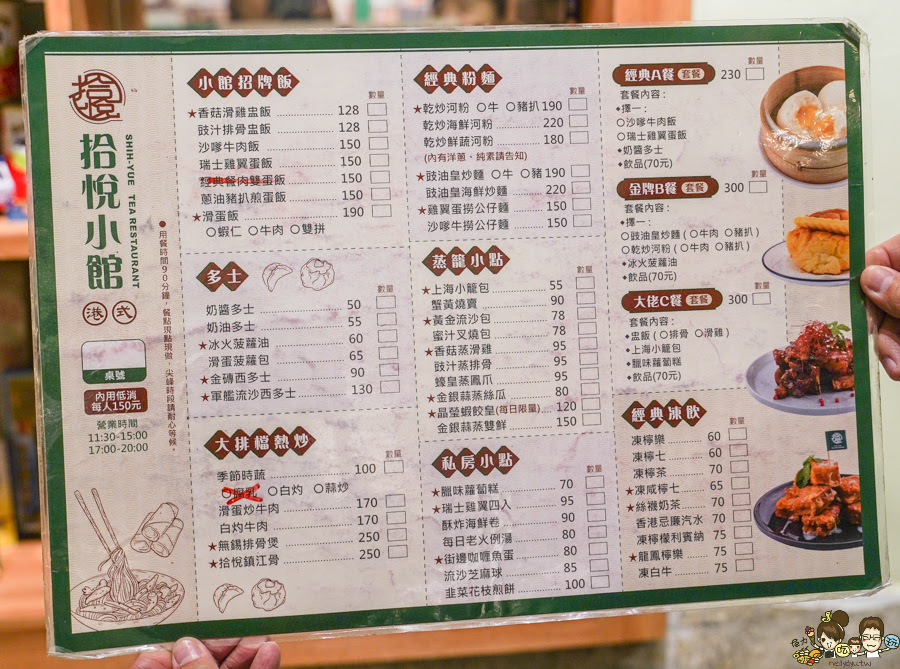 拾悅
拾悅小館
SHIH-YUE TEA RESTAURANT
港式
桌號
內用低消
每人150元
營業時間
11:30-15:00
17:00-20:00
●用餐時間90分鐘，餐點現點現做，尖峰時段請耐心等候。
小館招牌飯
數量
★香菇滑雞盅飯 128
豉汁排骨盅飯 128
沙嗲牛肉飯 150
瑞士雞翼蛋飯 150
經典餐肉雙蛋飯 150
蔥油豬扒煎蛋飯 150
★滑蛋飯 190
○蝦仁 ○牛肉 ○雙拼
多士
數量
奶醬多士 50
奶油多士 55
★冰火菠蘿油 60
滑蛋菠蘿包 65
★金磚西多士 90
★軍艦流沙西多士 130
大排檔熱炒
數量
季節時蔬 100
○腐乳 ○白灼 ○蒜炒
滑蛋炒牛肉 170
白灼牛肉 170
★無錫排骨煲 250
★拾悅鎮江骨 250
經典粉麵
數量
★乾炒河粉 ○牛 ○豬扒 190
乾炒海鮮河粉 220
乾炒鮮蔬河粉 180
(內有洋蔥、純素請告知)
★豉油皇炒麵 ○牛 ○豬 190
豉油皇海鮮炒麵 220
★雞翼蛋撈公仔麵 150
沙嗲牛撈公仔麵 150
蒸籠小點
數量
★上海小籠包 55
蟹黃燒賣 90
★黃金流沙包 78
蜜汁叉燒包 78
★香菇蒸滑雞 95
豉汁蒸排骨 95
蠔皇蒸鳳爪 95
★金銀蒜蒸絲瓜 80
★晶瑩蝦餃皇(每日限量) 120
金銀蒜蒸雙鮮 150
私房小點
數量
★臘味蘿蔔糕 70
★瑞士雞翼四入 95
酥炸海鮮卷 90
每日老火例湯 80
★街邊咖喱魚蛋 80
流沙芝麻球 85
韭菜花枝煎餅 100
數量
經典A餐 套餐 230
套餐內容：
⬥擇一：
○沙嗲牛肉飯
○瑞士雞翼蛋飯
⬥奶醬多士
⬥飲品(70元)
數量
金牌B餐 套餐 300
套餐內容：
⬥擇一：
○豉油皇炒麵 ( ○牛肉 ○豬扒 )
○乾炒河粉 ( ○牛肉 ○豬扒 )
⬥冰火菠蘿油
⬥飲品(70元)
數量
大佬C餐 套餐 300
套餐內容：
⬥盅飯 ( ○排骨 ○滑雞 )
⬥上海小籠包
⬥臘味蘿蔔糕
⬥飲品(70元)
經典凍飲
數量
凍檸樂 60
凍檸七 60
凍檸茶 70
★凍咸檸七 65
★絲襪奶茶 70
香港忌廉汽水 70
凍檸檬利賓納 75
★龍鳳檸樂 75
凍白牛 75
nellydyu.tw